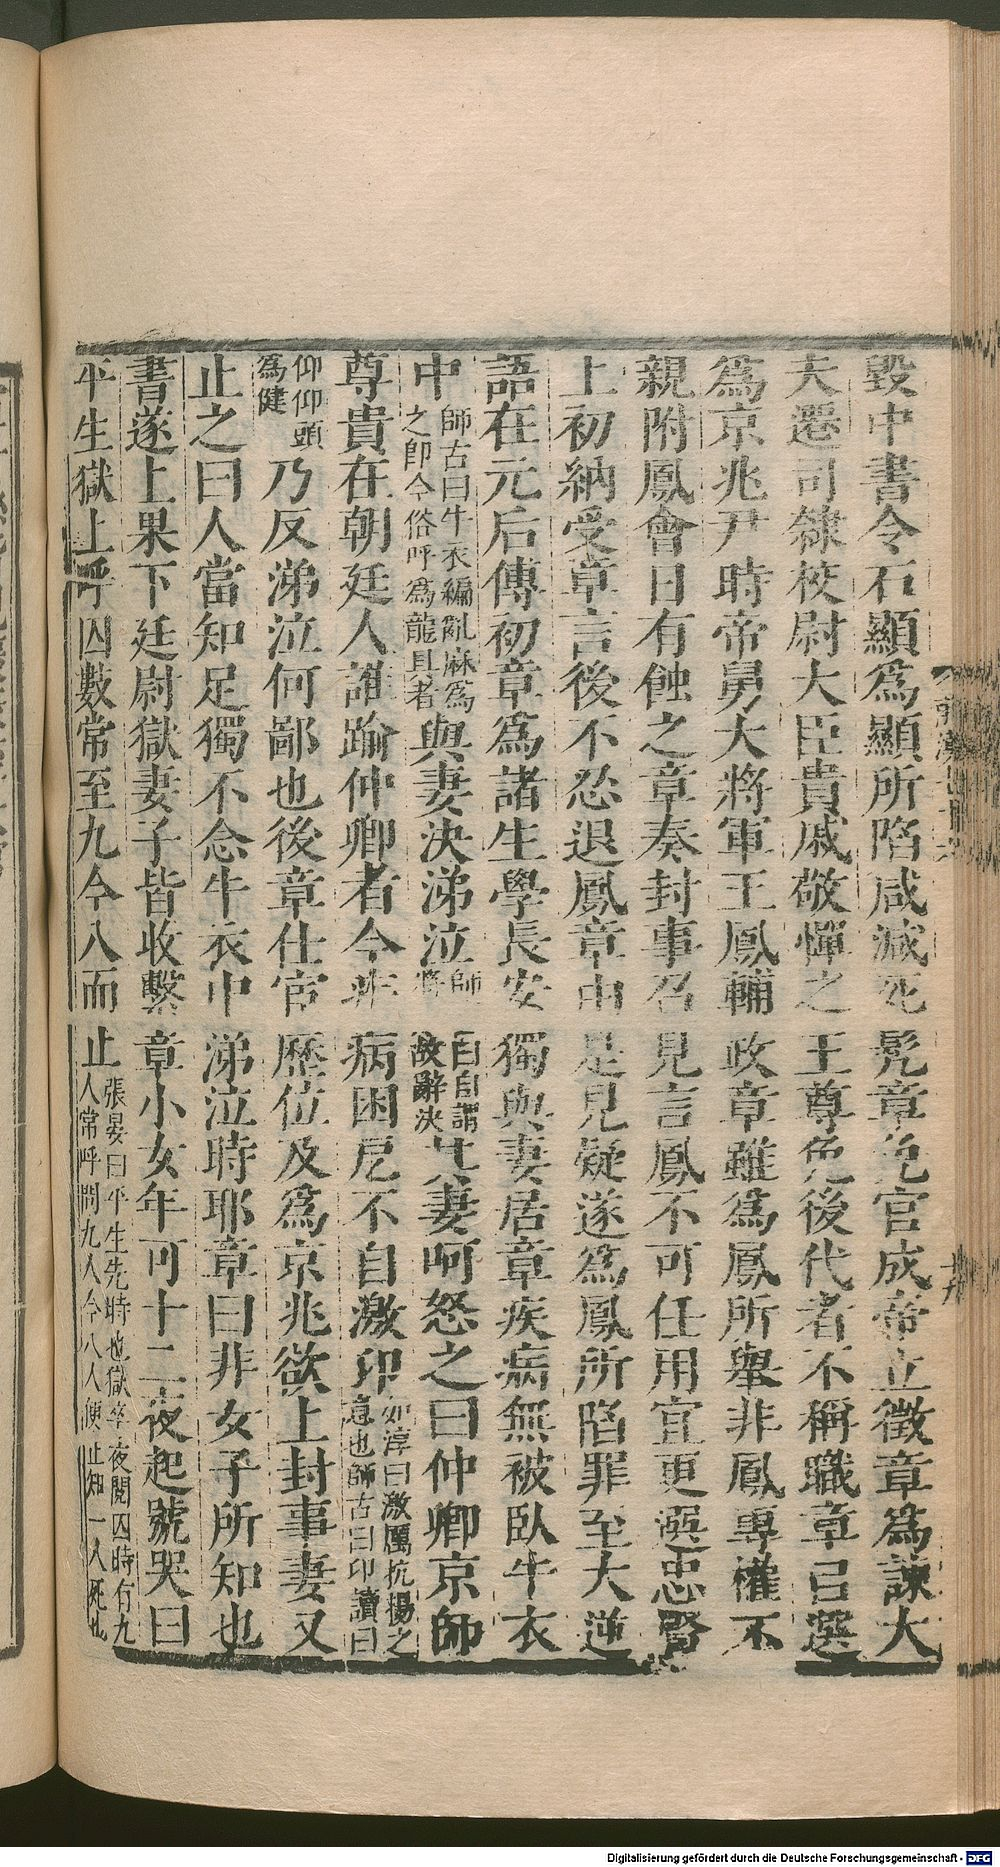 毀中書令石顯爲顯所陷咸減死髠章免官成帝立徵章爲諫大
夫遷司隸校尉大臣貴戚敬憚之王尊免後代者不稱職章已選
爲京兆尹時帝舅大將軍王鳳輔政章雖爲鳳所舉非鳳專權不
親附鳳會日有蝕之章奏封事召見言鳳不可任用宜更選忠賢
上初納受章言後不忍退鳳章由是見疑遂爲鳳所陷罪至大逆
語在元后傳初章爲諸生學長安獨與妻居章疾病無被臥牛衣
中師古曰牛衣編亂麻爲之卽今俗呼爲龍具者與妻決涕泣師將自自謂故辭決其妻呵怒之曰仲卿京師
尊貴在朝廷人誰踰仲卿者今非病困戹不自激卬如淳曰激厲抗揚之意也師古曰卬讀曰
仰仰頭爲健乃反涕泣何鄙也後章仕官歷位及爲京兆欲上封事妻又
止之曰人當知足獨不念牛衣中涕泣時耶章曰非女子所知也
書遂上果下廷尉獄妻子皆收繫章小女年可十二夜起號哭曰
平生獄上呼囚數常至九今八而止張晏曰平生先時也獄卒夜閱囚時有九人常呼問九人今八人便止知一人死也
Digitalisierung gefördert durch die Deutsche Forschungsgemeinschaft - DFG